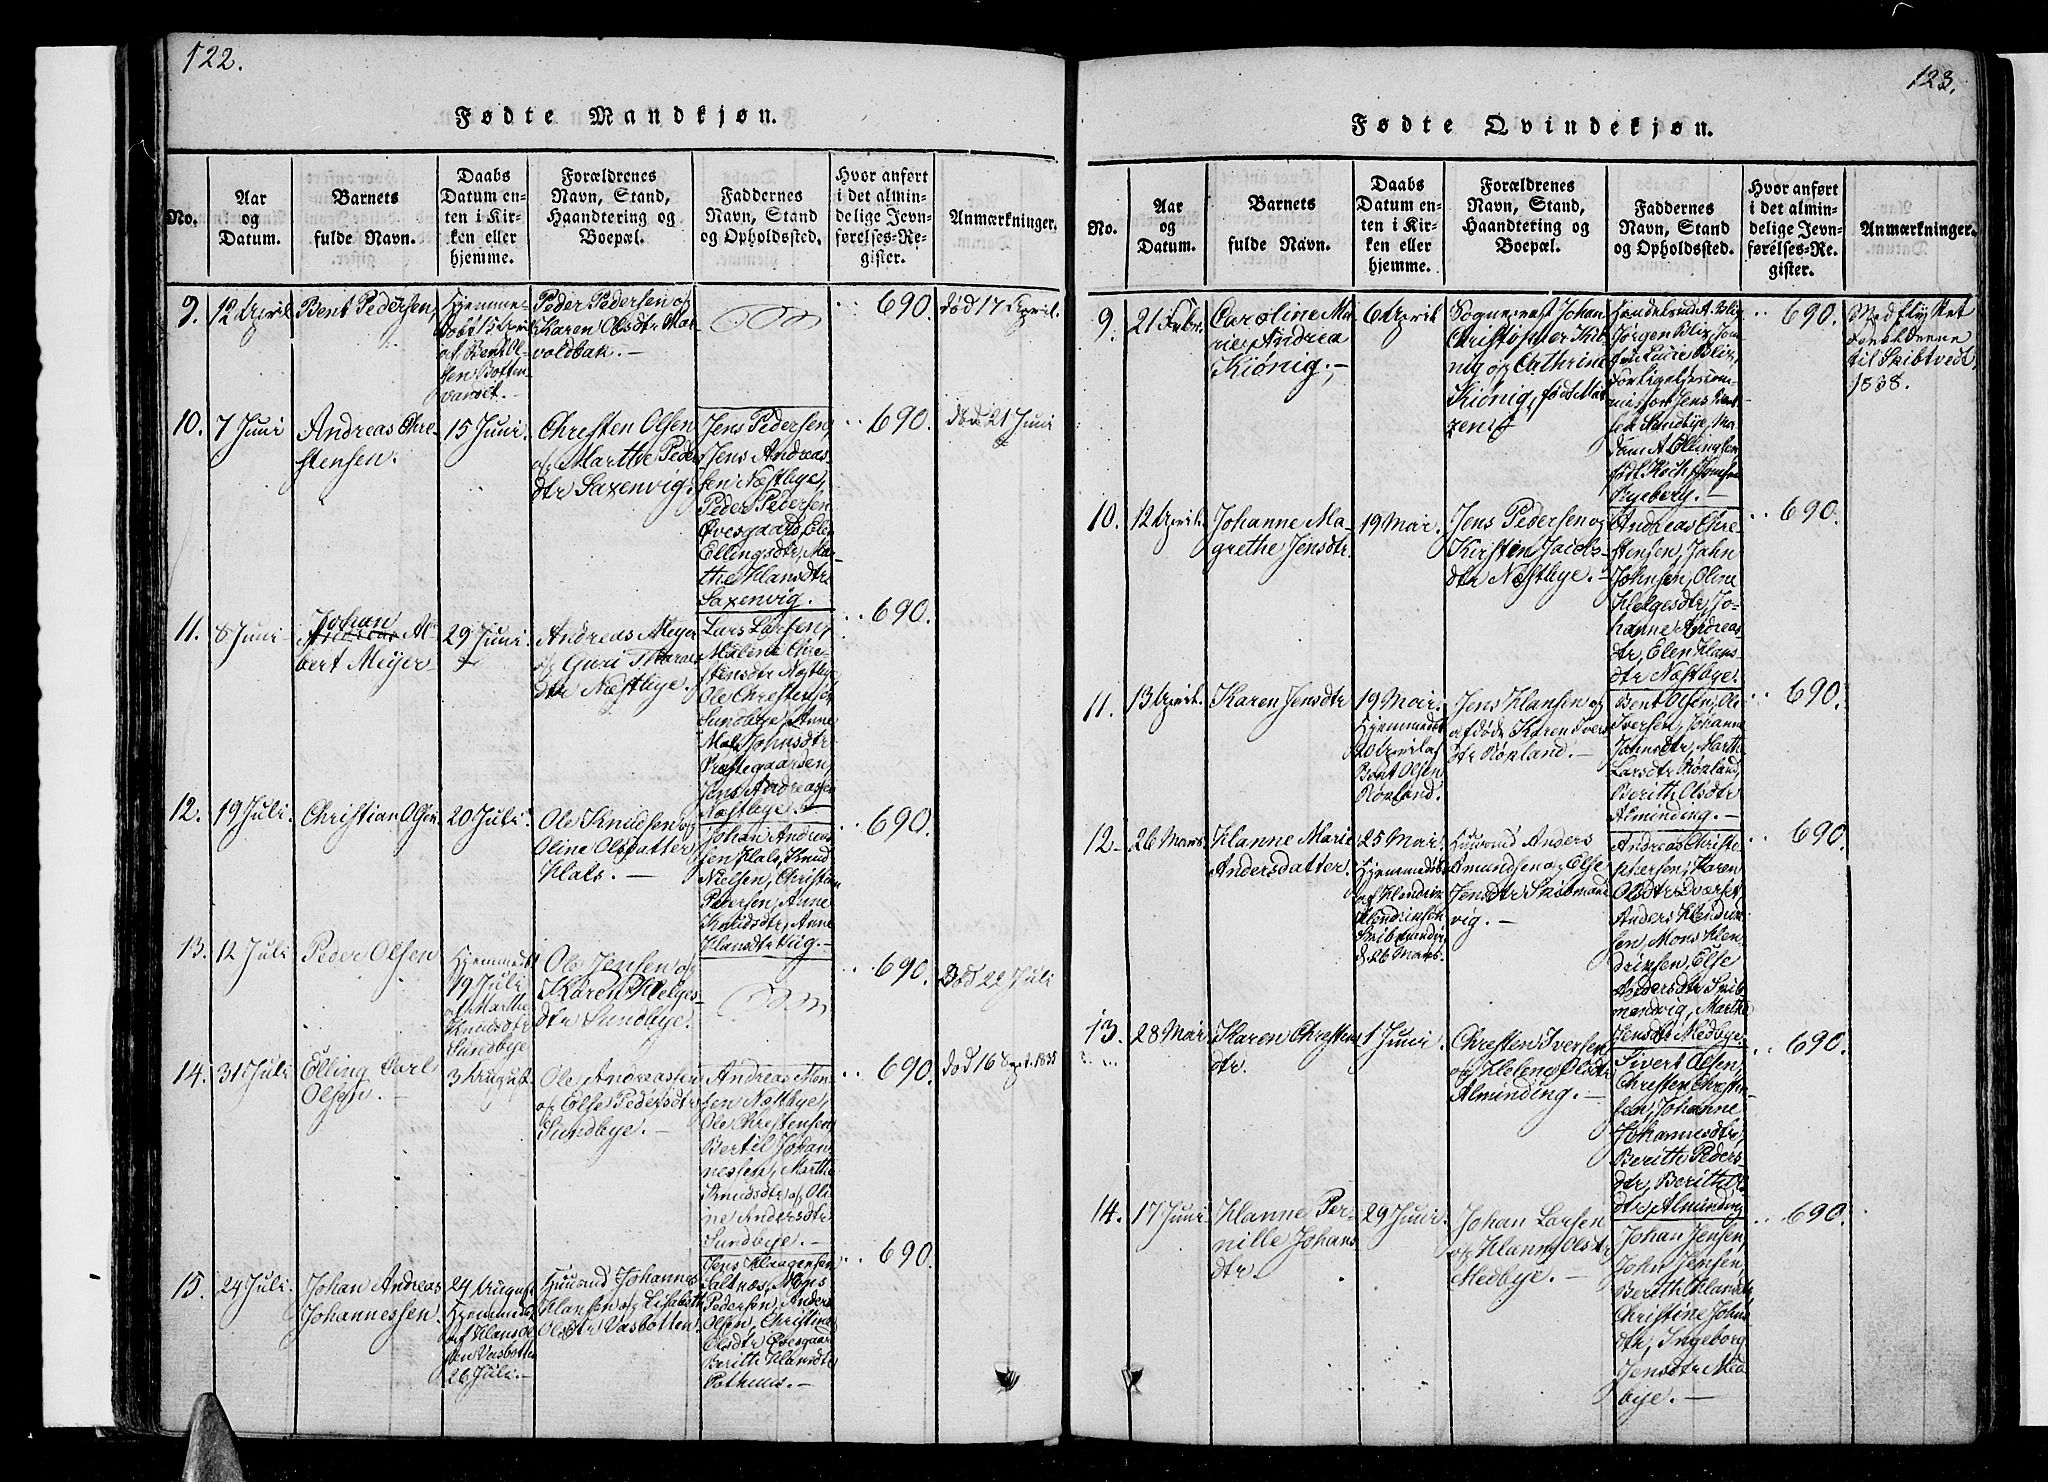 122.
Fødte Mandkjøn.
No.
Aar
og
Datum.
Barnets
fulde Navn.
Daabs
Datum en-
ten i Kir-
ken eller
hjemme.
Forældrenes
Navn, Stand,
Haandtering og
Boepæl.
Faddernes
Navn, Stand
og Opholdssted.
Hvor anført
i det almin-
delige Jevn-
førelses-Re-
gister.
Anmærkninger.
9.
12 April
Bent Pedersen,
Hjemme-
døbt 15 April
af Bent Ol-
sen
Peder Pedersen og
Karen Olsdtr
690.
død 17 April.
10.
7 Juni
Andreas Chre-
stensen.
15 Juni.
Chresten Olsen
og Marthe Peders
dtr Saxenvig.
Jens Pedersen,
Jens Andreas-
sen Næstbye,
Peder Pedersen
Øvesgaard, Elen
Ellingsdtr, Mar-
the Hansdtr
Saxenvig.
690.
død 21 Juni
11.
8 Juni
Johan
Andreas Al-
bert Meyer
29 Juni.
Andreas Meyer
og Guri
dtr Næstbye.
Lars Larsen,
Malene Chre-
stensdtr Næstbye
Ole Chrestensen
Sundbye, Anne
Johnsdtr
Præstegaarden,
Jens Andreasen
Næstbye.
690.
12.
19 Juli.
Christian Olsen
20 Juli.
Ole Knudsen og
Oline Olsdatter
Hals.
Johan Andreas-
sen Hals, Knud
Nielsen, Christian
Pedersen, Anne
Knudsdtr, Anne
Hansdtr Vig.
690.
13.
12 Juli
Peder Olsen
Hjemmedt
19 Juli
af Marthe
Knudsdtr
Sundbye
Ole Jensen og
Karen Helges-
dtr Sundbye.
690.
Død 22 Juli
14.
31 Juli
Elling Carl
Olsen.
3 August
Ole Andreassen
og Else Pedersdtr
Sundbye.
Andreas
sen Næstbye,
Ole Chrestensen
Bertil Johan-
nessen, Marthe
Knudsdtr og Oli-
ne Andersdtr
Sundbye.
690.
død 16 Sept. 1838
15.
24 Juli.
Johan Andreas
Johannessen.
24 August
Hjemmedt
af Hans Ol-
sen Vasbotten
26 Juli.
Huusmd Johannes
Hansen og Lisabeth
Olsdtr Vasbotten.
Jens Haagensen
Saltnæs, Mons
Pedersen, Anders
Olsen, Christine
Olsdtr Øvesgaard
Berith Hansdtr
690.
123.
Fødte Qvindekjøn.
No.
Aar
og
Datum.
Barnets
fulde Navn.
Daabs
Datum en-
ten i Kir-
ken eller
hjemme.
Forældrenes
Navn, Stand,
Haandtering og
Boepæl.
Faddernes
Navn, Stand
og Opholdssted.
Hvor anført
i det almin-
delige Jevn-
førelses-Re-
gister.
Anmærkninger.
9.
21 Febr.
Caroline Ma-
rie Andrea
Kiönig.
6 April
Sognepræst Johan
Christopher Kiö-
nig og Cathrine
Kiönig, født
Jørgen Blix, Jom-
frue Lucie Blix,
Forligelsescom-
missær Jens
Sundbye, Ma-
dam A. Ellingsen
født Koch, Jomfru
Ryeberg.
690.
Medflyttet
Forældrene
til Skibtvedt
1838.
10.
12 April.
Johanne Ma-
grethe Jensdtr.
19 Mai.
Jens Pedersen og
Kirstin Jacobs-
dtr Næstbye.
Andreas Chre-
stensen, John
Johnsen, Oline
Helgesdtr, Jo-
hanne Andreas-
dtr, Elen Hans-
dtr Næstbye.
690.
11.
13 April.
Karen Jensdtr
19 Mai.
Hjemmedøbt
20 April af
Bent Olsen
Røxland.
Jens Hansen og
afdøde Karen Ivers-
dtr Røxland.
Bent Olsen, Ole
Iversen, Johanne
Johnsdtr, Marthe
Larsdtr Røxland,
Berith Olsdtr
Alminding.
690.
12.
26 Marts.
Hanne Marie
Andersdatter.
25 Mai.
Hjemmedøbt
af Hendrik
Hendriksen
Skibmandvig
d. 26 Marts.
Huusmd Anders
Amundsen og Else
Jensdtr Skibmand-
vig.
Andreas Christo-
phersen, Karen
Olsdtr
Anders Hendrik-
sen, Mons Hen-
driksen, Else
Andersdtr Skib-
mandvig, Marthe
Jensdtr Medbye.
690.
13.
28 Mai
Karen Chrestens
dtr.
1 Juni.
Chresten Iversen
og Helene Olsdtr
Alminding.
Sivert Olsen,
Chresten Chresten-
sen, Johanne
Johannesdtr,
Berith Peders-
dtr, Berith
dtr, Alminding
690.
14.
17 Juni
Hanne Per-
nille Johans
dtr.
29 Juni.
Johan Larsen
og Hanne Olsdtr
Medbye.
Johan Jensen,
John Jensen,
Berith Hansdtr,
Christine Johns-
dtr, Ingeborg
Jensdtr Med-
bye.
690.